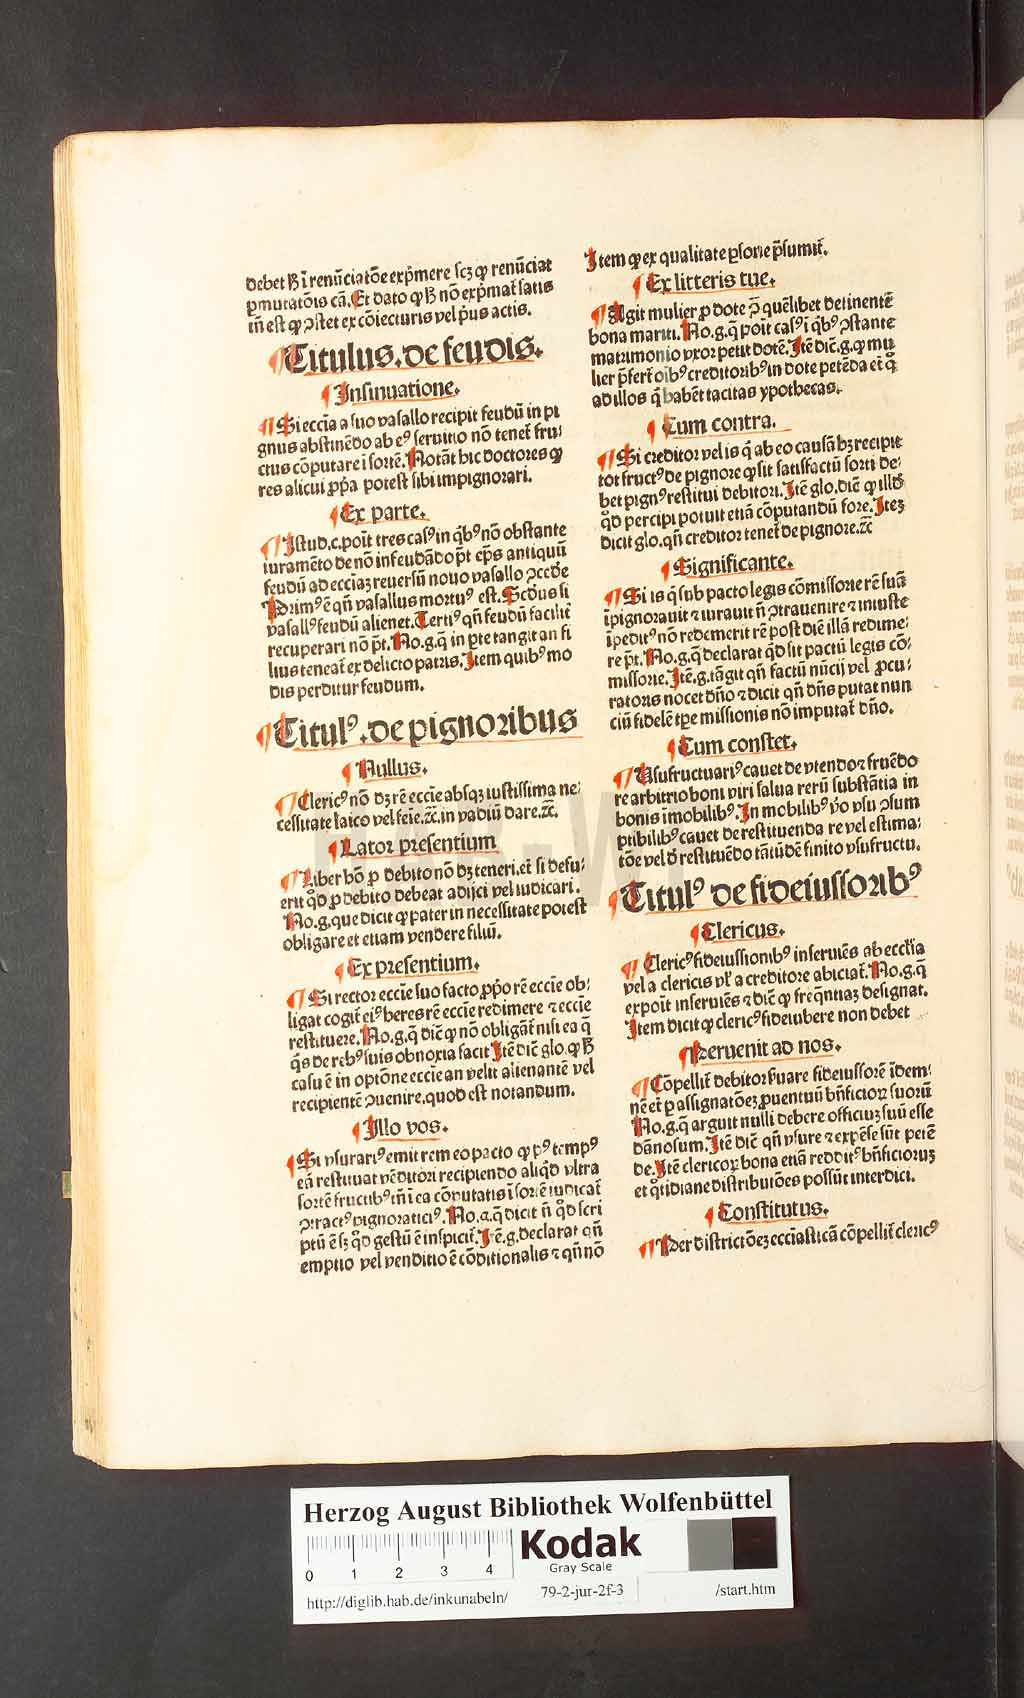 debet ħ ī renūciatōe exp̄mere ſcꝫ ꝙ renūciat
ꝑmutatōis cā. Et dato ꝙ ħ nō exp̄mat̄ ſatis
tn̄ eſt ꝙ ↄſtet ex cōiecturis vel p̄us actis.
¶ Titulus. de feudis.
¶ Inſinuatione.
¶ Si eccīa a ſuo vaſallo recipit feudū in pi
gnus abſtinēdo ab eꝰ ſeruitio nō tenet̄ fru⸗
ctus cōputare ī ſortē. Notāt hic doctores ꝙ
res alicui ꝓp̄a poteſt ſibi impignorari.
¶ Ex parte.
¶ Iſtud .c. poīt tres caſꝰ in qͥbꝰ nō obſtante
iuramēto de nō infeudādo p̄t ep̄s antiquū
feudū ad eccīaꝫ reuerſū nouo vaſallo ↄcede
Primꝰ ē qn̄ vaſallus mortuꝰ eſt. Scdus ſi
vaſallꝰ feudū alienet. Tertiꝰ qn̄ feudū facilit̄
recuperari nō p̄t. No. g. q̄ in ꝑte tangit an fi
lius teneat̄ ex delicto patris. Item quibꝰ mo
dis perditur feudum.
¶ Titulꝰ. de pignoribus
¶ Nullus.
¶ Clericꝰ nō dꝫ rē eccīe abſqꝫ iuſtiſſima ne⸗
ceſſitate laico vel feīe. ⁊c̄. in vadiū dare. ⁊c̄.
¶ Lator preſentium
¶ Liber hō ꝓ debito nō dꝫ teneri. et̄ ſi defu⸗
erit qͦd ꝓ debito debeat adijci vel iudicari.
No. g. que dicit ꝙ pater in neceſſitate poteſt
obligare et etiam vendere filiū.
¶ Ex preſentium.
¶ Si rector eccīe ſuo facto ꝓpͦo rē eccīe ob⸗
ligat cogit̄ eiꝰ heres rē eccīe redimere ⁊ eccīe
reſtituere. No. g. q̄ dic̄ ꝙ nō obligāt̄ niſi ea q̄
qͥs de rebꝰ ſuis obnoxia facit Itē dic̄ glo. ꝙ ħ
caſu ē in optōne eccīe an velit alienantē vel
recipientē ↄuenire. quod eſt notandum.
¶ Illo vos.
¶ Si vſurariꝰ emit rem eo pacto ꝙ pꝰ tempꝰ
eā reſtituat vēditori recipiendo aliqͦd vltra
ſortē fructibꝰ tn̄ ī ea cōputatis ī ſortē iudicat̄
ↄtractꝰ pignoraticiꝰ. No. g. q̄ dicit n̄ qͦd ſcri
ptū ē ſꝫ qͦd geſtū ē inſpicit̄. Itē .g. declarat qn̄
emptio vel venditio ē cōditionalis ⁊ qn̄ nō
Item ꝙ ex qualitate ꝑſone p̄ſumit̄.
¶ Ex litteris tue.
¶ Agit mulier ꝓ dote ↄ̄ quēlibet detinentē
bona mariti. No. g. q̄ poīt caſꝰ ī qͥbꝰ ↄſtante
matrimonio vxor petit dotē. Itē dic̄ .g. ꝙ mu
lier p̄fert̄ oībꝰ creditoribꝰ in dote petēda et qͦ
ad illos q̄ habēt tacitas ypothecas.
¶ Cum contra.
¶ Si creditor vel is q̄ ab eo cauſā hꝫ recipit
tot fructꝰ de pignore ꝙ ſit ſatiſfactū ſorti de⸗
bet pignꝰ reſtitui debitori. Itē glo. dic̄ ꝙ illd̄
qͦd percipi potuit etiā cōputandū fore. Iteꝫ
dicit glo. qn̄ creditor tenet̄ de pignore. ⁊c̄
¶ Significante.
¶ Si is q̄ ſub pacto legis cōmiſſorie rē ſuā
īpignorauit ⁊ iurauit n̄ ↄtrauenire ⁊ iniuſte
īpeditꝰ nō redemerit rē poſt diē illā redime⸗
re p̄t. No. g. q̄ declarat qͦd ſit pactū legis cō⸗
miſſorie. Itē .g. tāgit qn̄ factū nūcij vel ꝓcu⸗
ratoris nocet dn̄o ⁊ dicit qn̄ dn̄s putat nun
ciū fidelē tp̄e miſſionis nō imputat̄ dn̄o.
¶ Cum conſtet.
¶ Vſufructuariꝰ cauet de vtendo ⁊ fruēdo
re arbitrio boni viri ſalua rerū ſubſtātia in
bonis īmobilibꝰ. In mobilibꝰ v̊o vſu ↄſum
ptibilibꝰ cauet de reſtituenda re vel eſtima⸗
tōe vel d̄ reſtituēdo tātūdē finito vſufructu.
¶ Titulꝰ de fideiuſſoribꝰ
¶ Clericus.
¶ Clericꝰ fideiuſſionibꝰ inſeruiēs ab eccīīa
vel a clericis vl̓ a creditore abiciat̄. No. g. q̄
expoīt inſeruiēs ⁊ dic̄ ꝙ freq̄ntiaꝫ deſignat.
Item dicit ꝙ clericꝰ fideiubere non debet
¶ Peruenit ad nos.
¶ Cōpellit̄ debitor ſ̓uare fideiuſſorē īdem⸗
nē et ꝑ aſſignatōeꝫ ꝓuentuū bn̄ficioꝝ ſuorū
No. g. q̄ arguit nulli debere officiuꝫ ſuū eſſe
dānoſum. Itē dic̄ qn̄ vſure ⁊ expēſe ſūt petē
de. Itē clericoꝝ bona etiā redditꝰ bn̄ficioruꝫ
et qͦtidiane diſtributōes poſſūt interdici.
¶ Conſtitutus.
¶ Per diſtrictōeꝫ eccīaſticā cōpellit̄ clericꝰ
Herzog August Bibliothek Wolfenbüttel
0 1 2 3 4
Kodak
Gray Scale
http://diglib.hab.de/inkunabeln/ 79-2-jur-2f-3 /start.htm